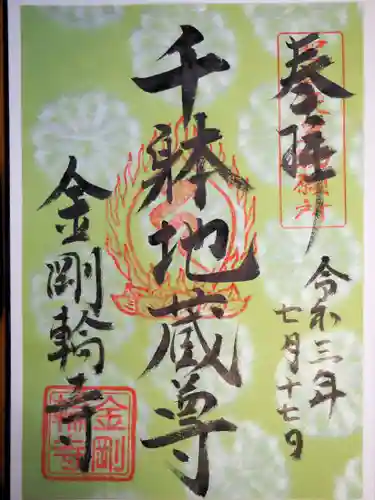 奉拝
令和三年
七月十七日
千躰地蔵尊
金剛輪寺
金剛
輪寺